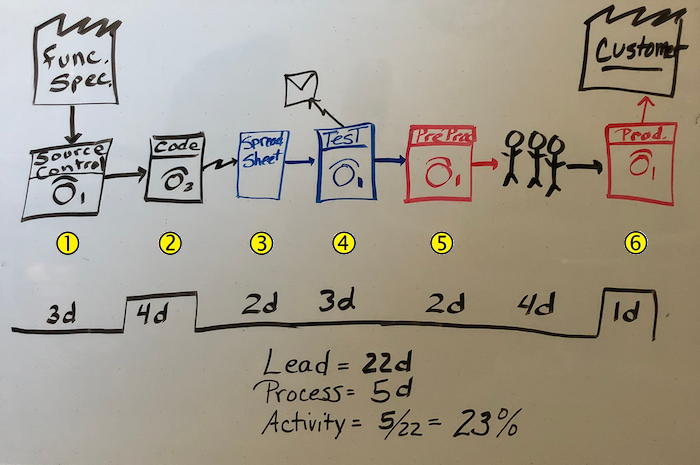 Func.
Spec.
Customer
Source
Control
1
Code
2
Spread
Sheet
Test
1
PreProd
1
Prod.
1
1
2
3
4
5
6
3d
4d
2d
3d
2d
4d
1d
Lead = 22d
Process = 5d
Activity = 5/22 = 23%